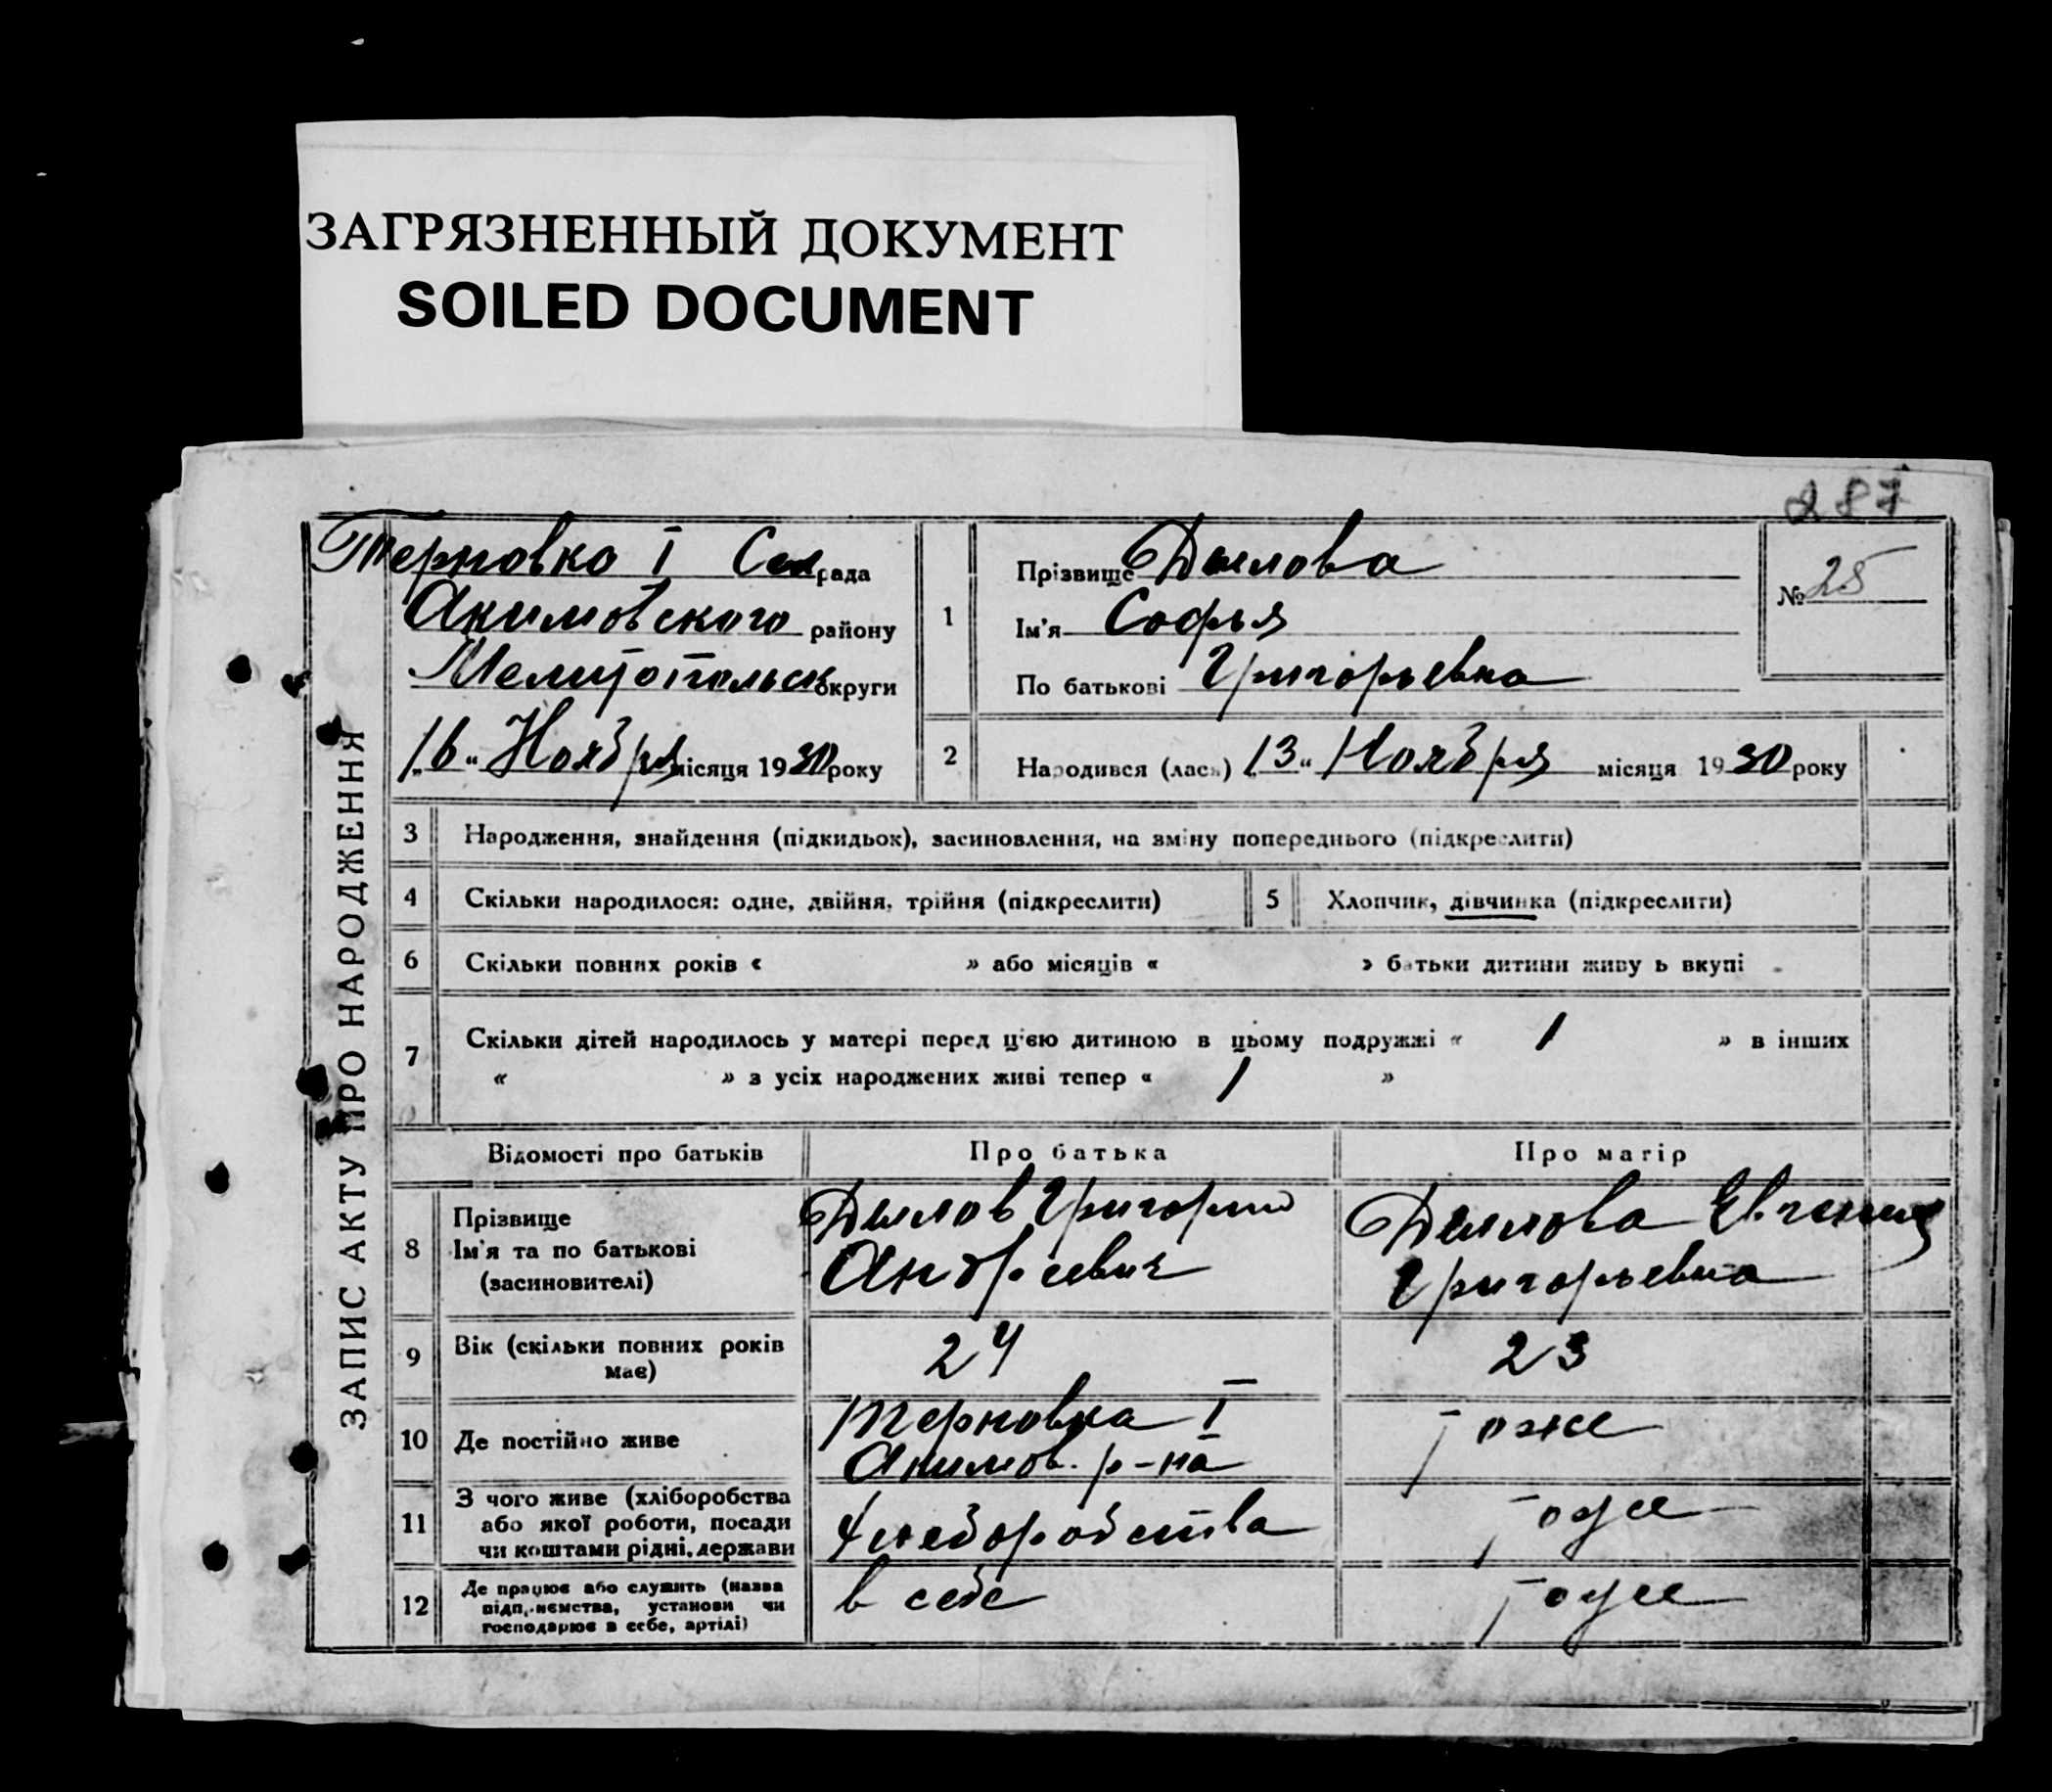 ЗАГРЯЗНЕННЫЙ ДОКУМЕНТ
SOILED DOCUMENT
287
ЗАПИС АКТУ ПРО НАРОДЖЕННЯ
Терновко I Сел рада
Акимовского району
Мелитопольск округи
„16“ Ноября місяця 1930 року
1
Прізвище Дымова
Ім'я Софья
По батькові Григорьевна
№ 25
2
Народився (лась) „13“ Ноября місяця 1930 року
3 Народження, знайдення (підкидьок), засиновлення, на зміну попереднього (підкреслити)
4 Скільки народилося: одне, двійня, трійня (підкреслити)
5 Хлопчик, дівчинка (підкреслити)
6 Скільки повних років « » або місяців « » батьки дитини живуть вкупі
7 Скільки дітей народилось у матері перед цією дитиною в цьому подружжі « 1 » в інших
« » з усіх народжених живі тепер « 1 »
Відомості про батьків
Про батька
Про матір
8
Прізвище
Ім'я та по батькові
(засиновителі)
Дымов Григорий
Андреевич
Дымова Евгения
Григорьевна
9
Вік (скільки повних років
має)
24
23
10 Де постійно живе
Терновка I
Акимов. р-на
тоже
11
З чого живе (хліборобства
або якої роботи, посади
чи коштами рідні, держави
Хлеборобства
тоже
12
Де працює або служить (назва
підприємства, установи чи
господарює в себе, артілі)
в себе
тоже